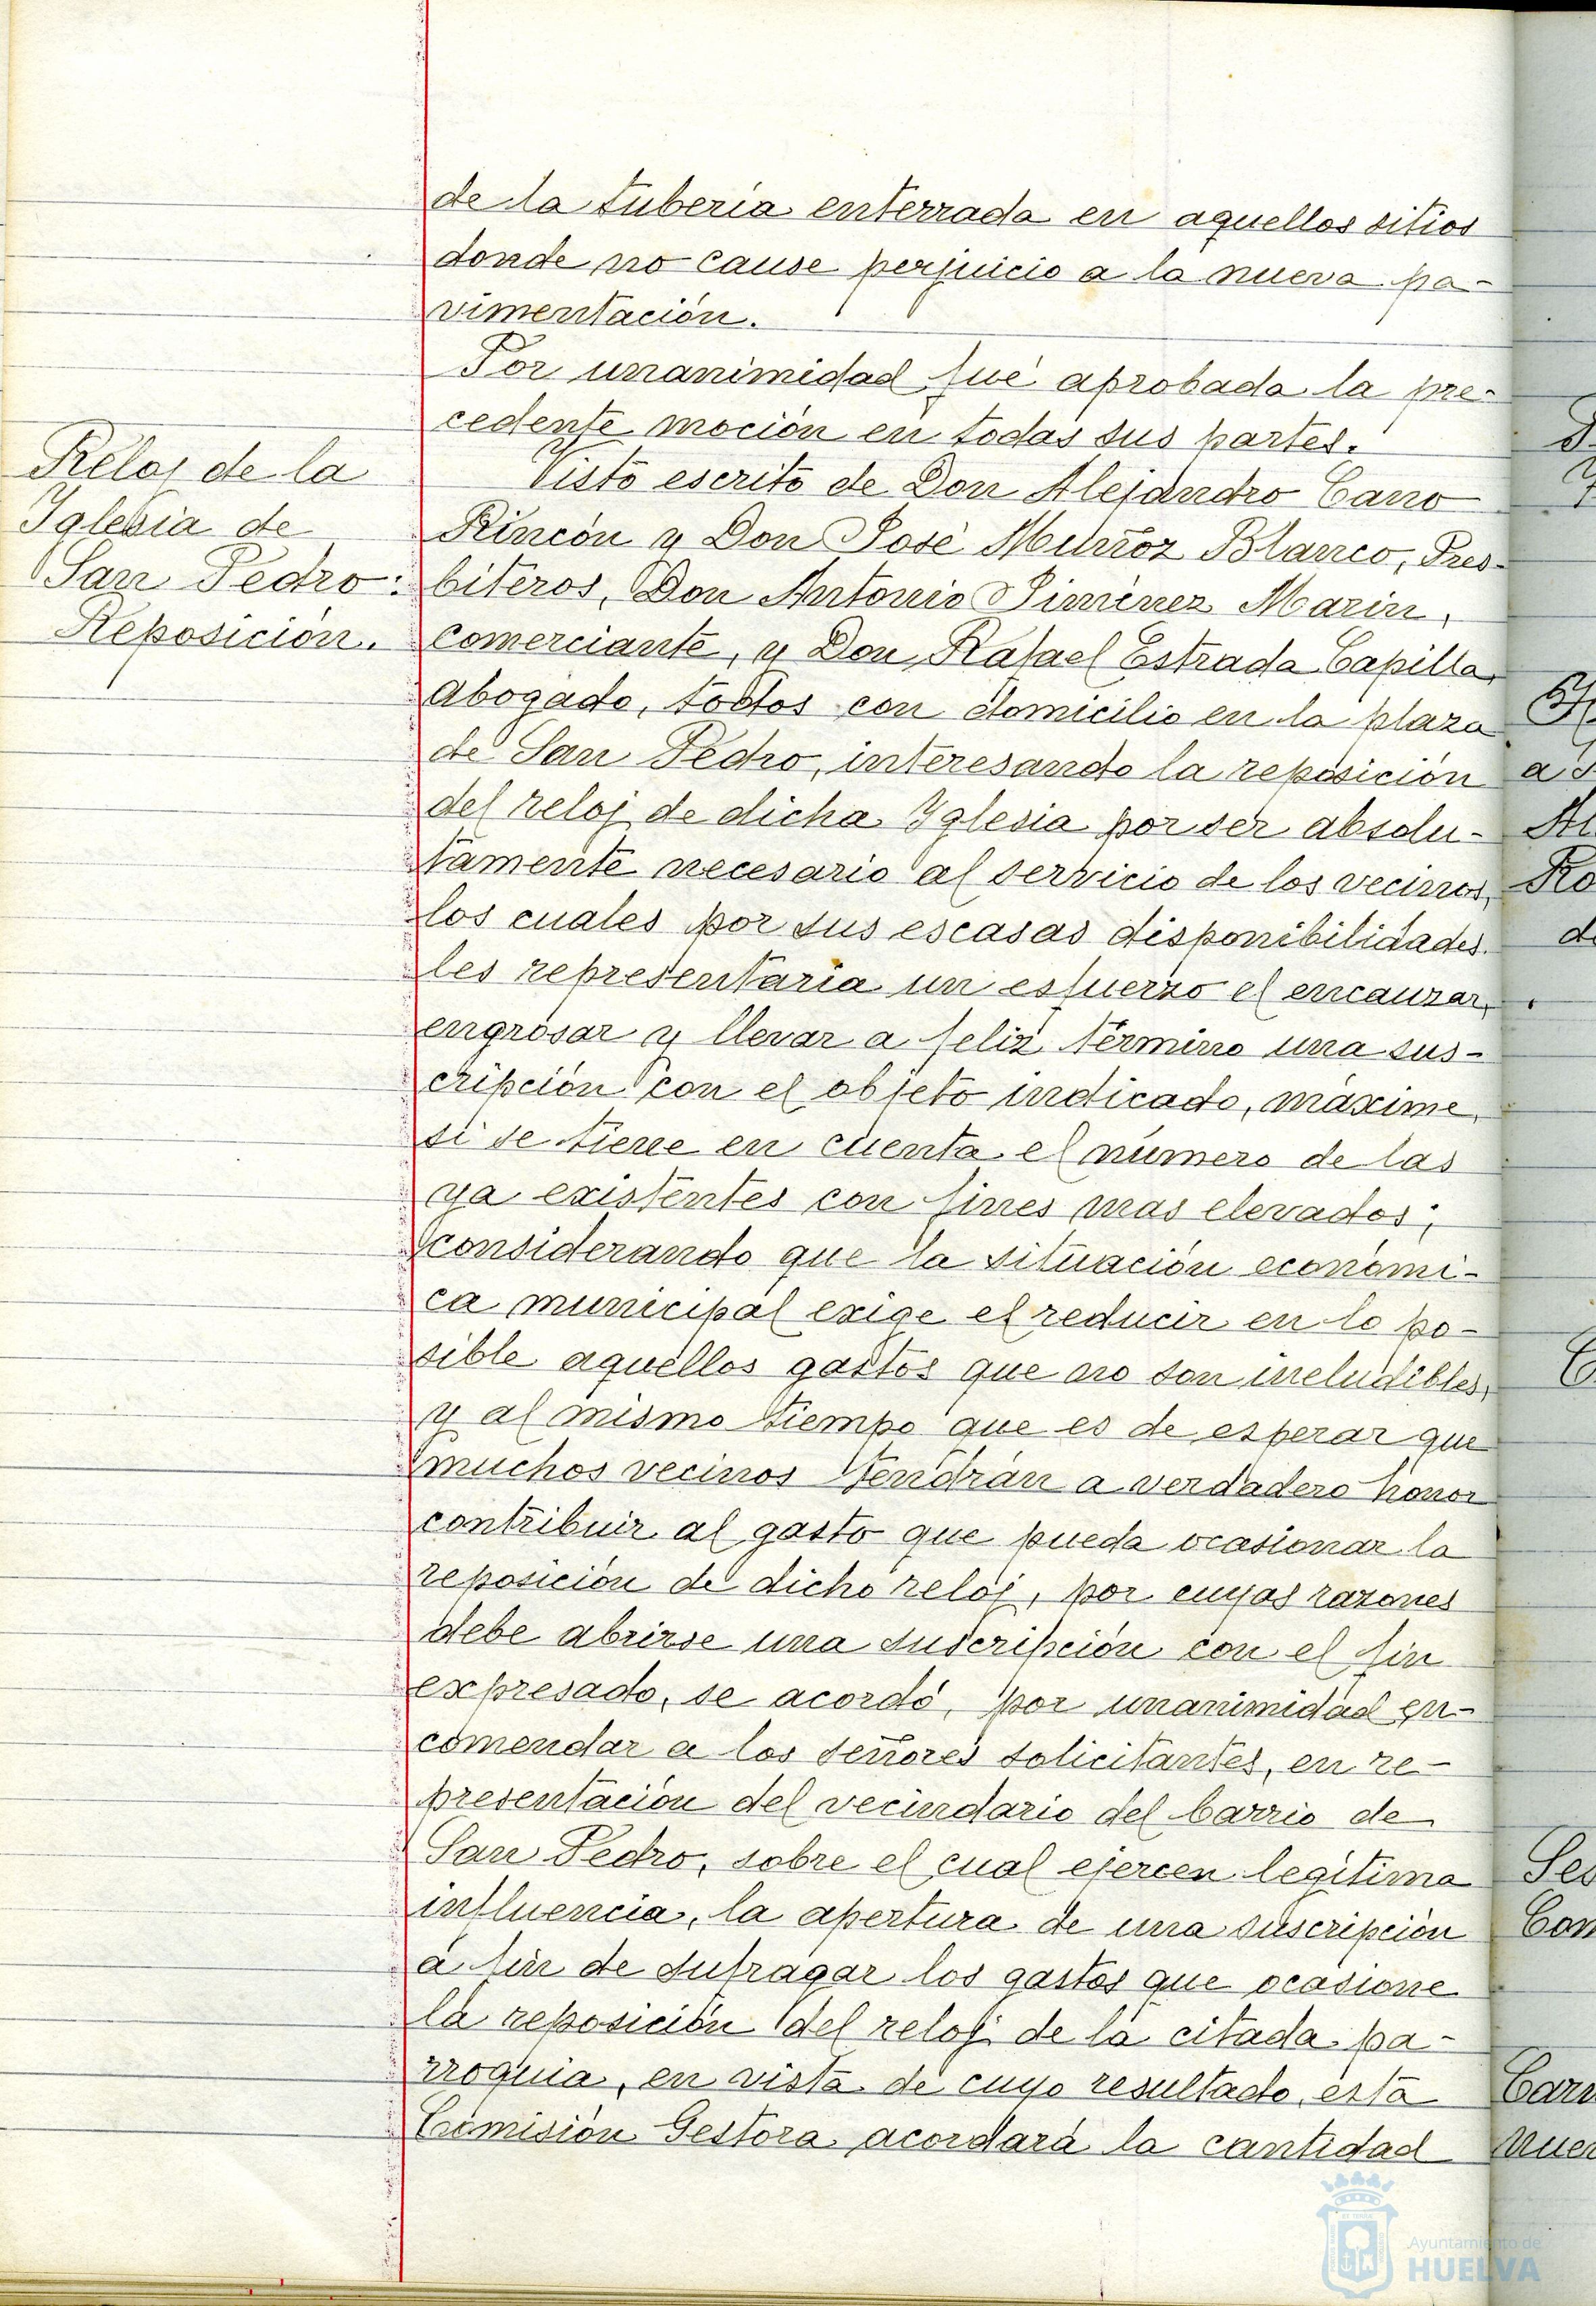 de la tuberia enterrada en aquellos sitios
donde no cause perjuicio a la nueva pa-
vimentación.
Por unanimidad fué aprobada la pre-
cedente moción en todas sus partes.
Reloj de la
Iglesia de
San Pedro:
Reposición.
Visto escrito de Don Alejandro Cano
Rincón y Don José Muñoz Blanco, Pres-
biteros, Don Antonio Jiménez Marin,
comerciante, y Don Rafael Estrada Capilla,
Abogado, todos con domicilio en la plaza
de San Pedro, interesando la reposición
del reloj de dicha Iglesia por ser absolu-
tamente necesario al servicio de los vecinos,
los cuales por sus escasas disponibilidades
les representaria un esfuerzo el encauzar,
engrosar y llevar a feliz término una sus-
cripción con el objeto indicado, máxime
si se tiene en cuenta el número de las
ya existentes con fines mas elevados;
considerando que la situación económi-
ca municipal exige el reducir en lo po-
sible aquellos gastos que no son ineludibles,
y al mismo tiempo que es de esperar que
muchos vecinos tendrán a verdadero honor
contribuir al gasto que pueda ocasionar la
reposición de dicho reloj, por cuyas razones
debe abrirse una suscripción con el fin
expresado, se acordó, por unanimidad en-
comendar a los señores solicitantes, en re-
presentación del vecindario del barrio de
San Pedro, sobre el cual ejercen legitima
influencia, la apertura de una suscripción
a fin de sufragar los gastos que ocasione
la reposición del reloj de la citada pa-
rroquia, en vista de cuyo resultado, esta
Comisión Gestora acordará la cantidad
Ayuntamiento de
HUELVA